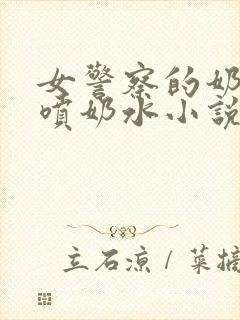 女警察的奶
喷奶水小说
立石凉 / 菜摘